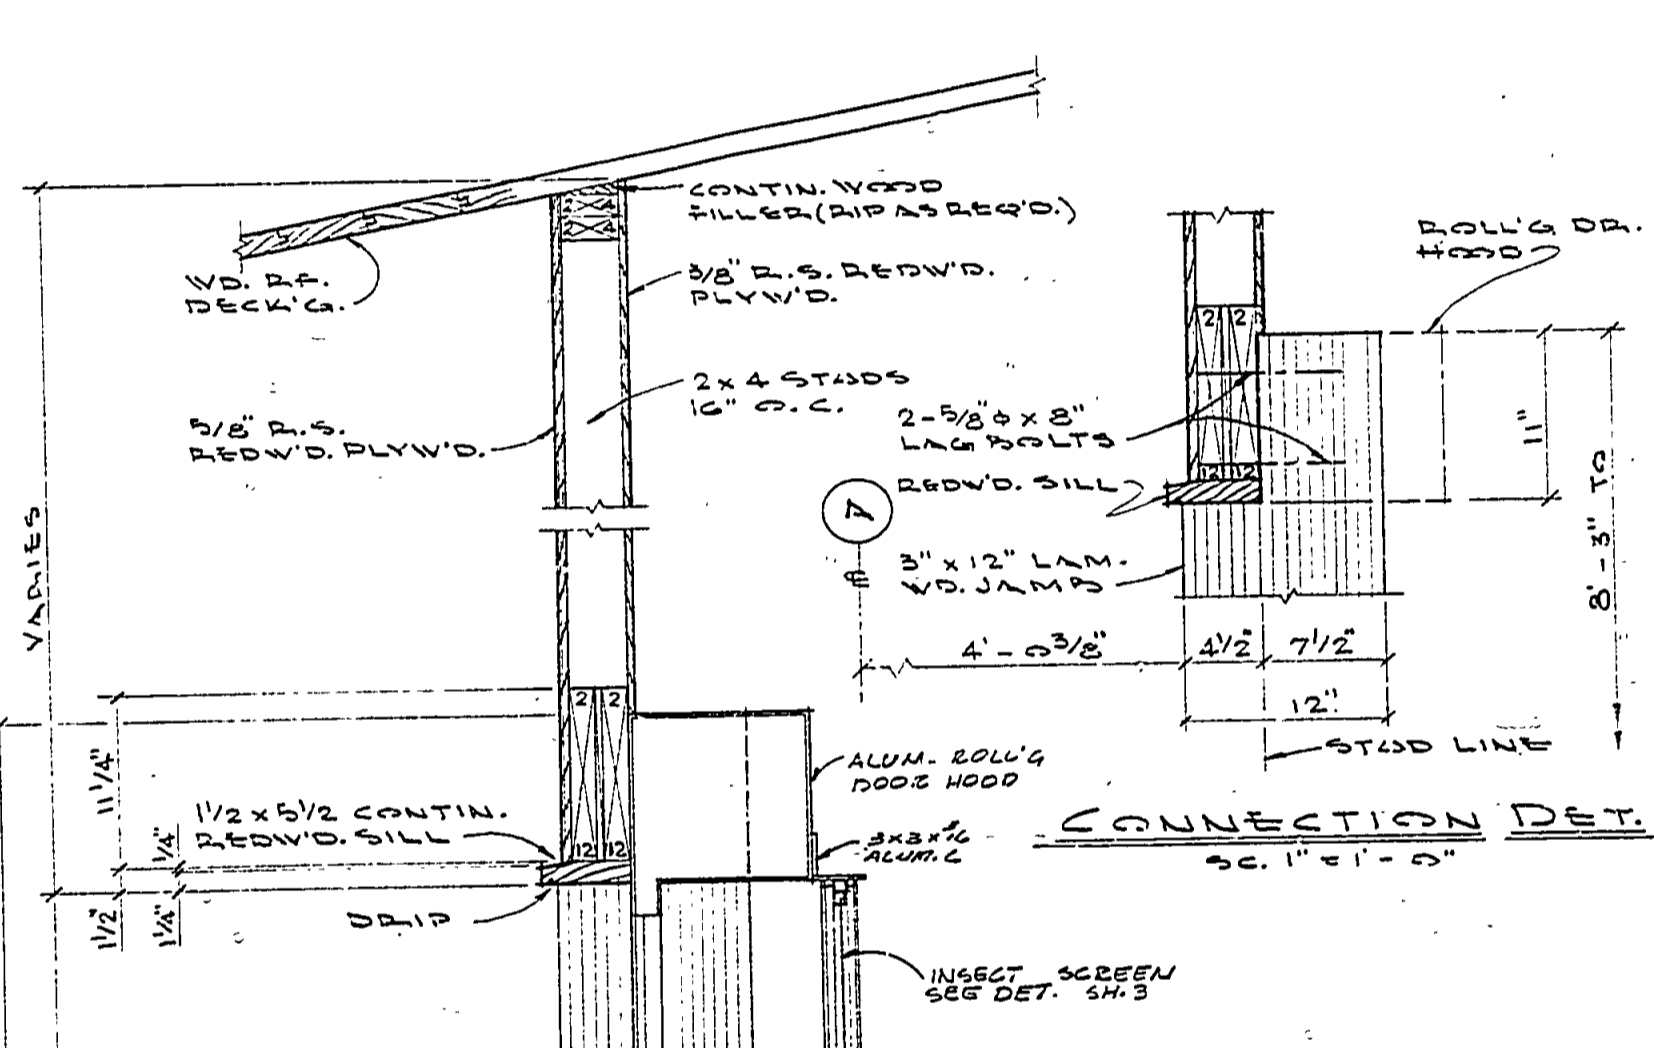 CONTIN. WOOD
FILLER (RIP AS REQ'D.)
WD. RF.
DECK'G.
3/8" R.S. REDW'D.
PLYW'D.
2 x 4 STUDS
16" O.C.
5/8" R.S.
REDW'D. PLYW'D.
VARIES
2 2
12 12
11 1/4"
1/4"
1 1/2 x 5 1/2 CONTIN.
REDW'D. SILL
1 1/2"
1 1/4"
DRIP
ALUM. ROLL'G
DOOR HOOD
3x3x
ALUM. L
INSECT SCREEN
SEE DET. SH. 3
ROLL'G DR.
HOOD
2 2
2-5/8" ϕ x 8"
LAG BOLTS
12 12
REDW'D. SILL
A
3" x 12" LAM.
WD. JAMB
11"
8'-3" TO
4'-0 3/8"
4 1/2"
7 1/2"
12"
STUD LINE
CONNECTION DET.
SC. 1" = 1'-0"